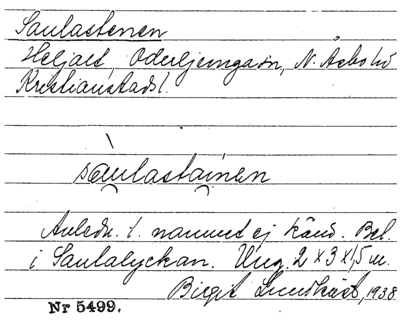 Saulastenen
Heljalt, Oderljungasn, N. Åsbo hd
Kristianstads l.
sàulastáinen
Anledn. t. namnet ej känd. Bel.
i Saulalyckan. Ung. 2 x 3 x 1,5 m.
Birgit Lundkvist, 1938
Nr 5499.